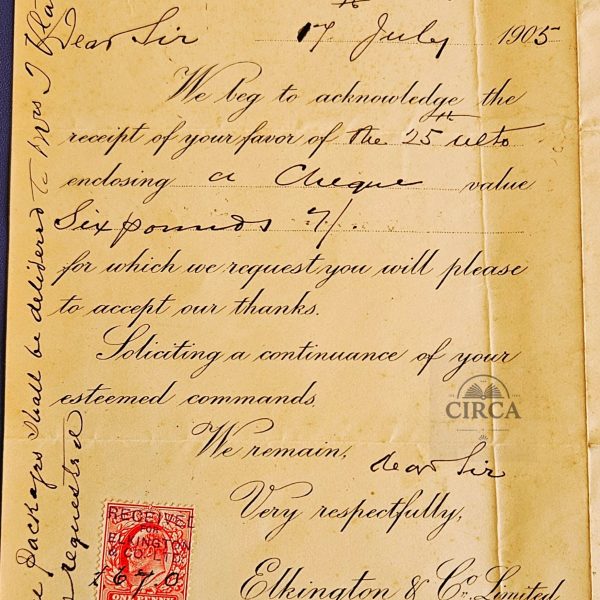 Dear Sir 17th July 1905
We beg to acknowledge the
receipt of your favor of the 25th ulto
enclosing a Cheque value
Six pounds 7/.
for which we request you will please
to accept our thanks.
Soliciting a continuance of your
esteemed commands.
We remain, dear Sir
Very respectfully,
Elkington & Co. Limited
Packages shall be delivered to Mrs J
requested
RECEIVED
FOR
ELKINGTON
& CO. LTD
£6 7 0
ONE PENNY
CIRCA